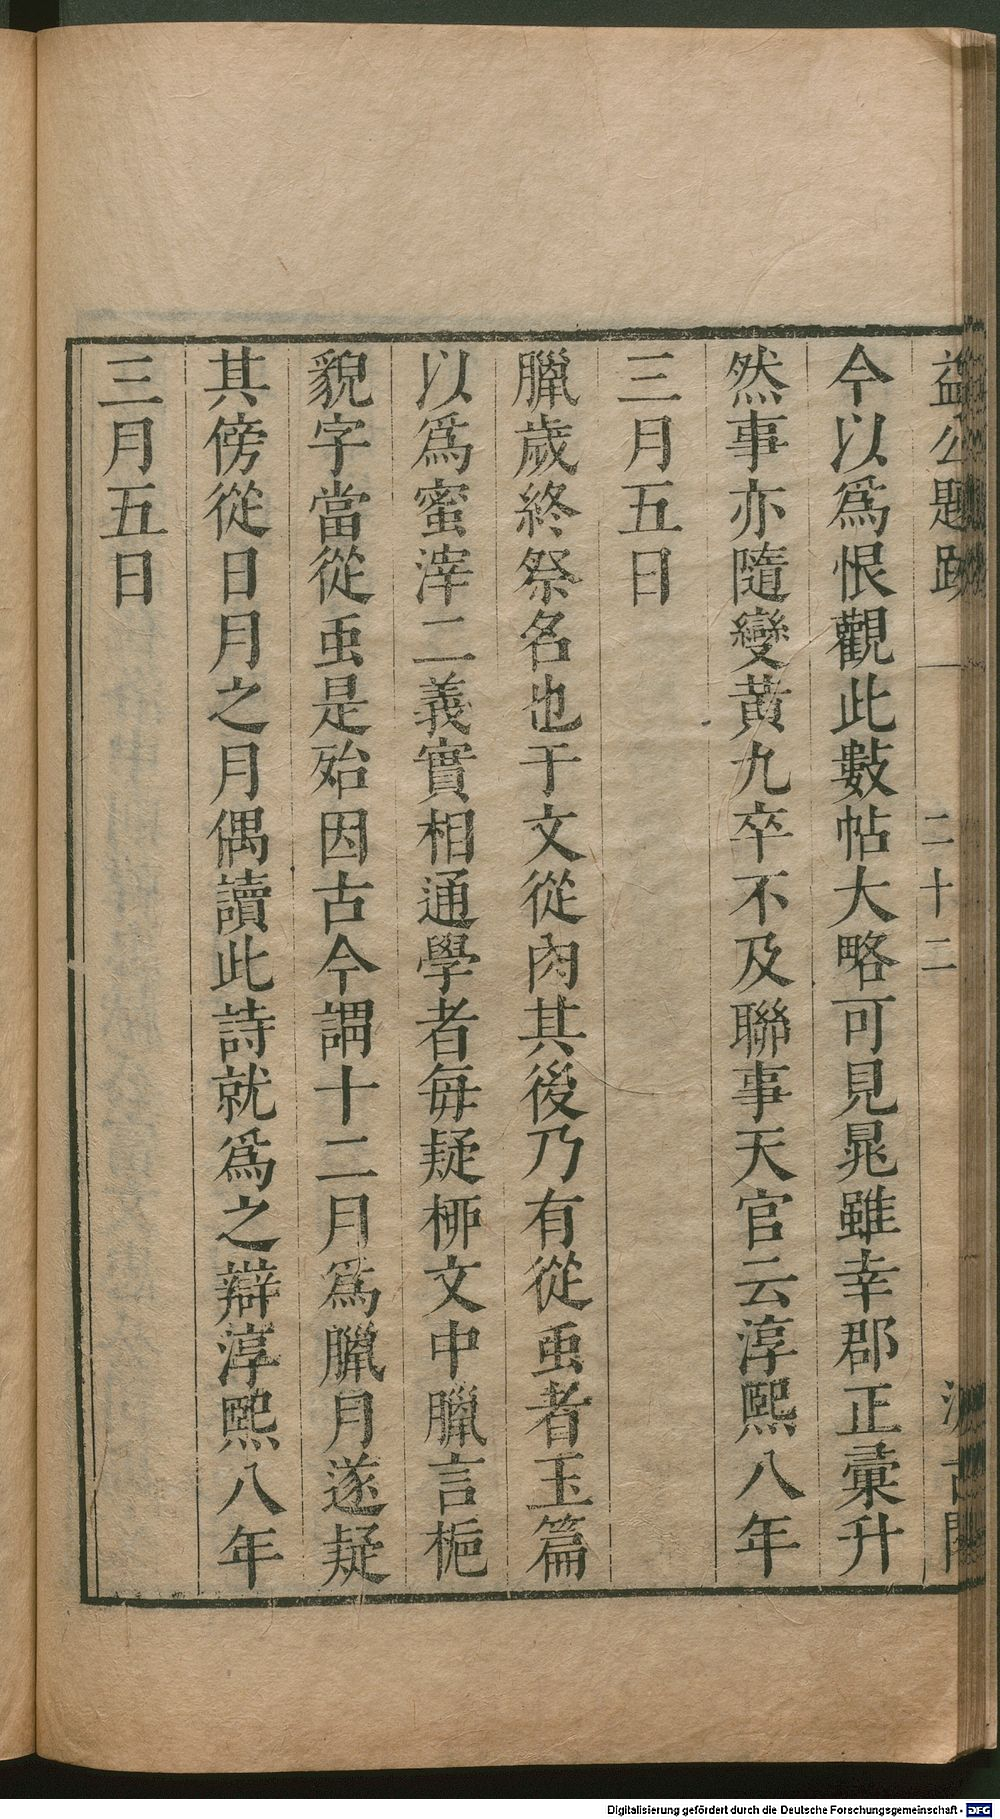 益公題跋 二十二 汲古閣
今以爲恨觀此數帖大略可見晁雖幸郡正彙升
然事亦隨變黃九卒不及聯事天官云淳熙八年
三月五日
臘歲終祭名也于文從肉其後乃有從虫者玉篇
以爲蜜滓二義實相通學者每疑栁文中臘言梔
貌字當從䖝是殆因古今謂十二月爲臘月遂疑
其傍從日月之月偶讀此詩就爲之辯淳熙八年
三月五日
Digitalisierung gefördert durch die Deutsche Forschungsgemeinschaft - DFG